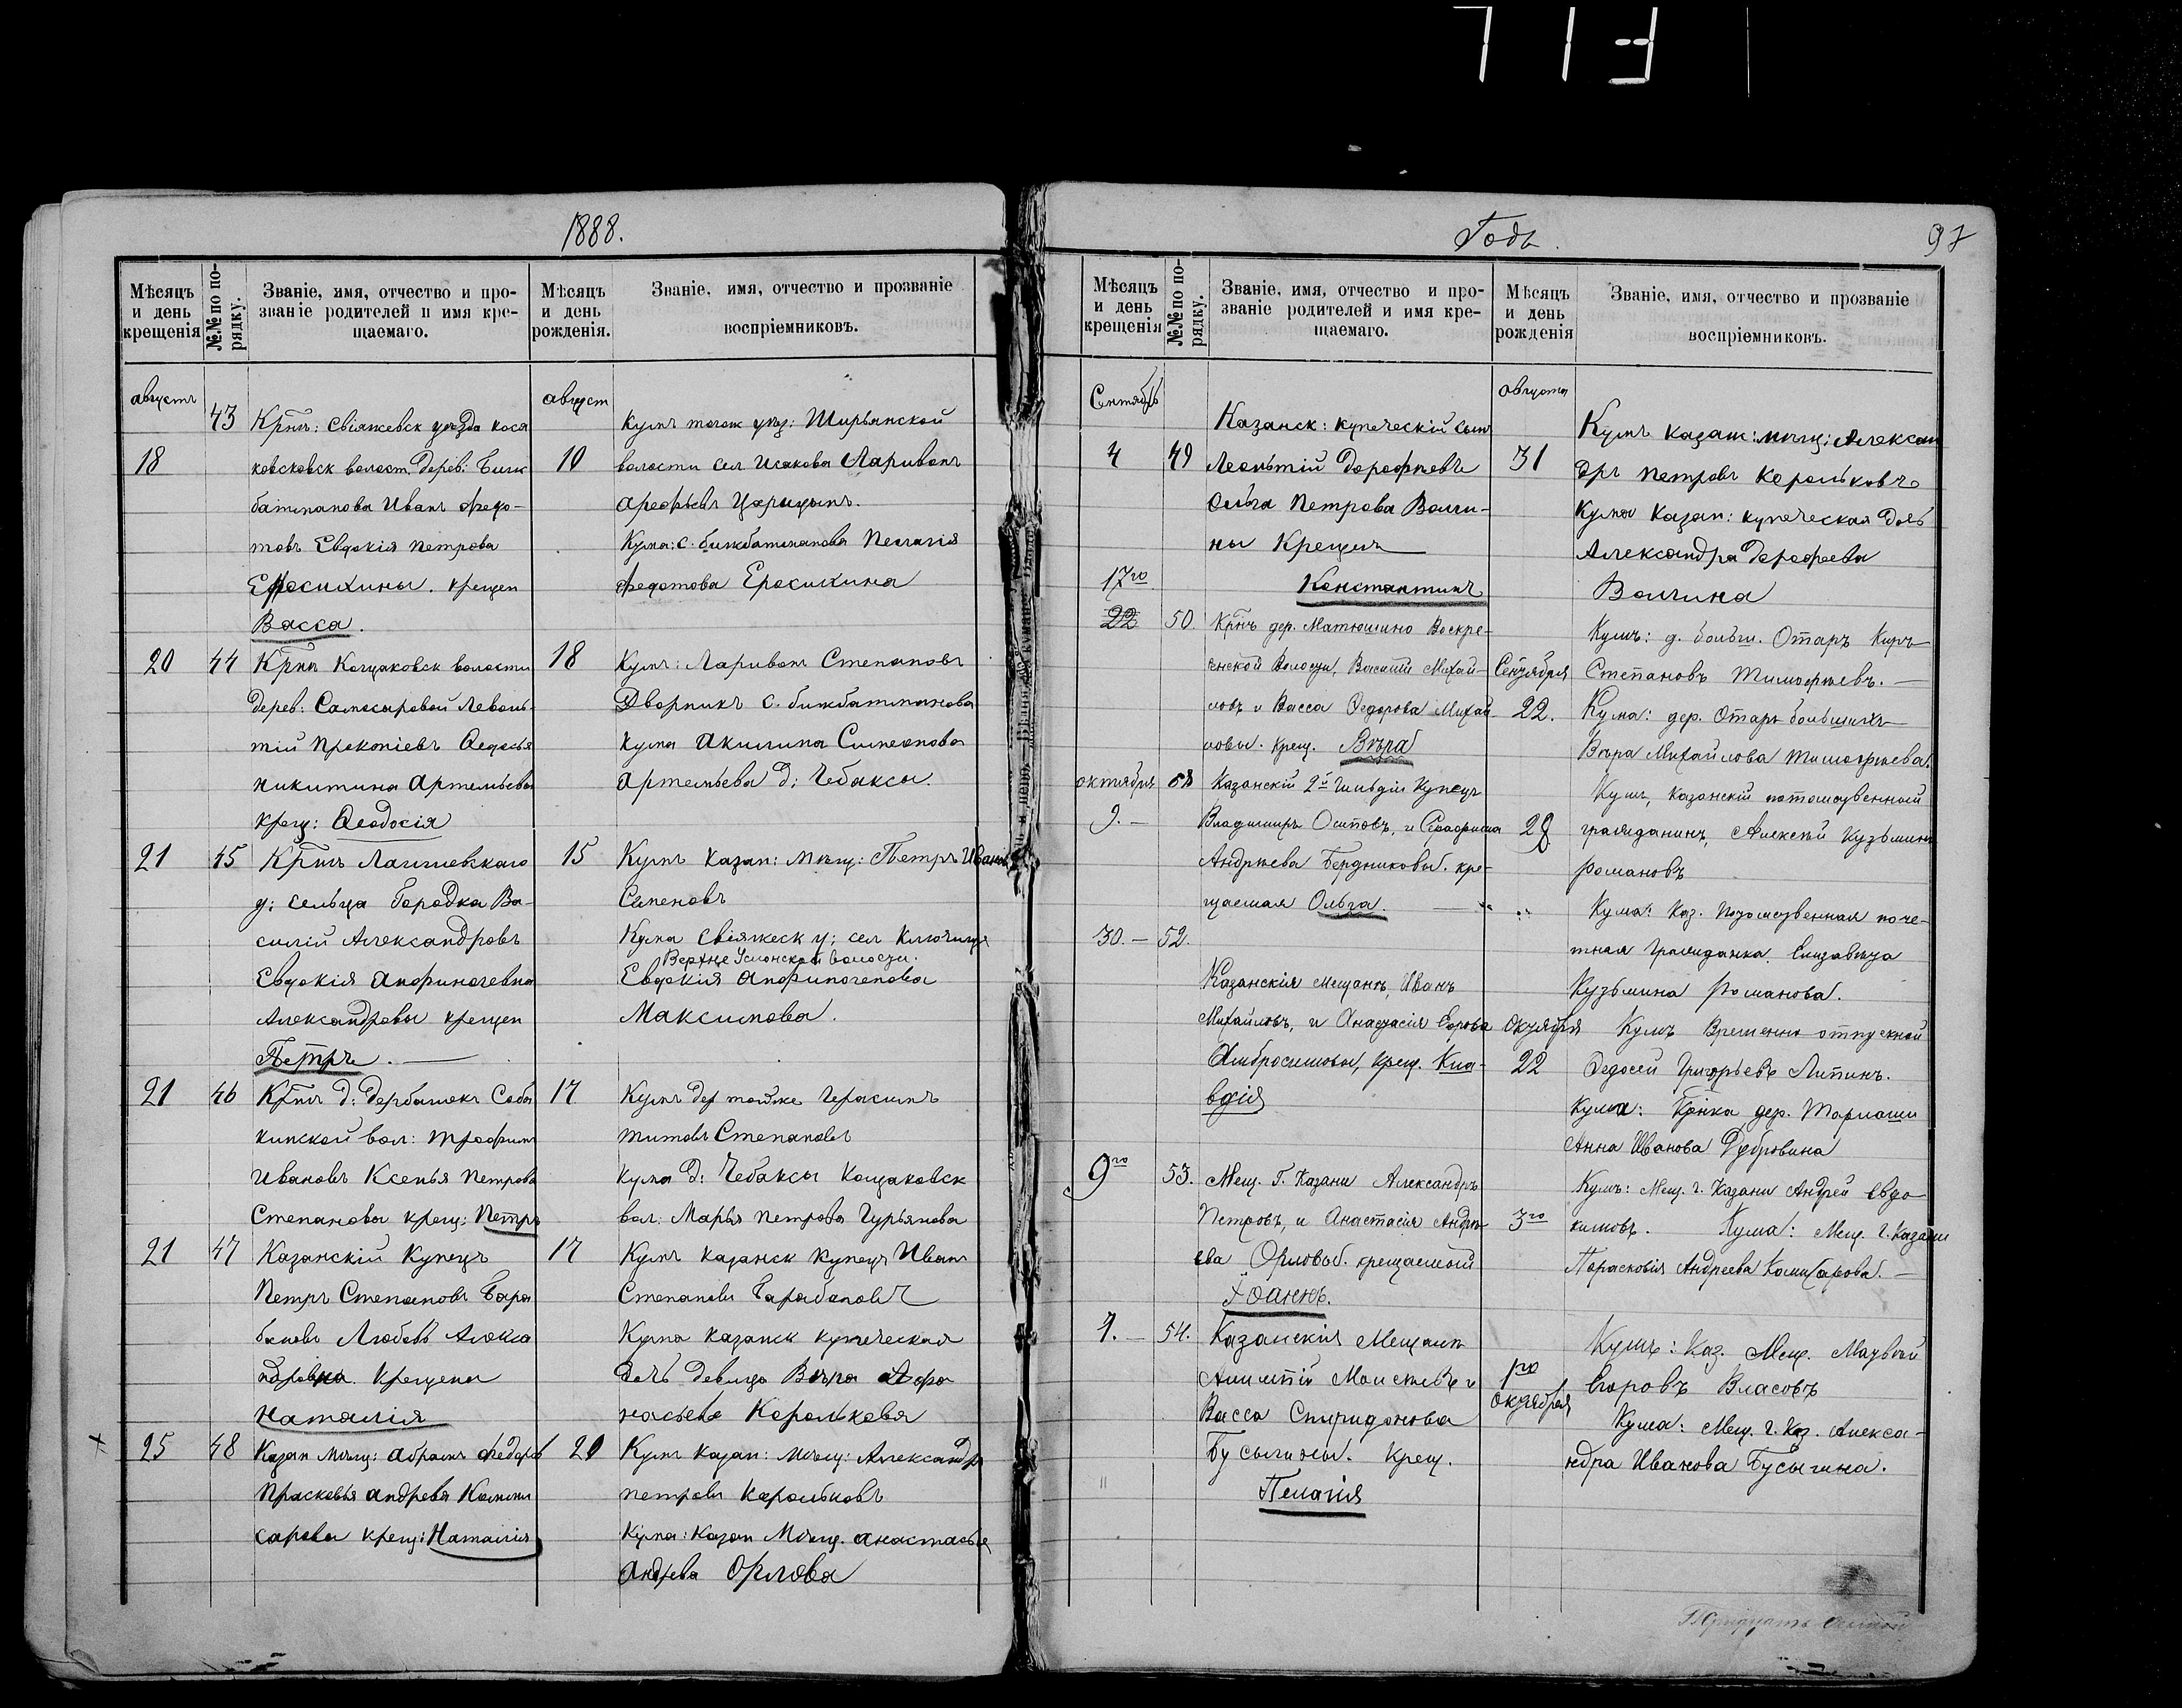 1888.
Мѣсяцъ и день крещенія
№№ по порядку.
Званіе, имя, отчество и про-
званіе родителей и имя кре-
щаемаго.
Мѣсяцъ и день рожденія.
Званіе, имя, отчество и прозваніе
воспріемниковъ.
августъ
43
18
Крт͠нъ: Свіяжевск уѣзда кося
ковсковск волост дерев: Бишк
батманова Иванъ Ѳедо-
товъ Евдокія Петрова
Еросихины. крещен
Васса.
август
10
Кумъ тогож уѣз: Ширьянской
волости сел Исакова Ларивонъ
Арефьевъ Царицынъ.
Кума: с. бишбатманова Пелагія
Федотова Еросихина
20
44
Крт͠нъ Кощаковск волости
дерев: Самосыровой Левонь-
тій Прокопіевъ Ѳедосья
Никитина Артемьевы
крещ: Ѳеодосія
18
Кумъ: Ларивонъ Степановъ
Дворникъ с. бишбатманова
Кума Акилина Симеонова
Артемьева д: Чебаксы.
21
45
Крт͠нъ Лаишевскаго
у: сельца Городка Ва-
силій Александровъ
Евдокія Анфиногевна
Александровы крещен
Петръ.
15
Кумъ Казан: мѣщ: Петръ Ивановъ
Семеновъ
Кума Свіяжеск у: сел Ключищъ
Верхне Услонской волости.
Евдокія Анфиногенова
Максимова.
21
46
Крт͠нъ д: Дербышокъ Соба
кинской вол: Трофимъ
Ивановъ Ксенья Петрова
Степановы крещ: Петръ
17
Кумъ дер тойже Герасимъ
Титовъ Степановъ
Кума д: Чебаксы Кощаковск
вол: Марья Петрова Гурьянова
21
47
Казанскій Купецъ
Петръ Степановъ Бара
бановъ Любовь Алекса
ндровна. Крещена
Наталія
17
Кумъ Казанск Купецъ Иванъ
Степановъ Барабановъ
Кума Казанск купеческая
дочь девица Вѣра Афа
насьева Королькова
25
48
Казан мѣщ: Абрамъ Федоров
Прасковья Андрева Комми
саровы крещ: Наталія
20
Кумъ Казан: мѣщ: Александр
Петровъ Корольковъ
Кума: Казан Мѣщ. Анастасья
Андрева Орлова
Годъ.
97
Мѣсяцъ и день крещенія
№№ по порядку.
Званіе, имя, отчество и про-
званіе родителей и имя кре-
щаемаго.
Мѣсяцъ и день рожденія
Званіе, имя, отчество и прозваніе
воспріемниковъ.
Сентябрь
4
49
Казанск: купеческій сынъ
Леонтій Дорофѣевъ
Ольга Петрова Волги-
ны Крещенъ
Константинъ
августа
31
Кумъ Казан: мѣщ: Алексан
дръ Петровъ Корольковъ
Кума Казан: купеческая дочь
Александра Дорофеева
Волгина
17го
22
50.
Кр͠нъ дер. Матюшино Воскре-
сенской Волости, Василій Михай-
ловъ и Васса Ѳедорова Михай-
ловы. крещ. Вѣра
Сентября
22.
Кумъ: д. больш. Отаръ Кирѣ
Степановъ Тимофѣевъ.
Кума: дер. Отаръ большихъ
Вѣра Михайлова Тимофѣева.
октября
9.
Казанскій 2й Гильдіи Купецъ
Владиміръ Осиповъ, и Серафима
Андрѣева Бердниковы. кре-
щаемая Ольга.
28
Кумъ, Казанскій потомственный
гражданинъ, Алексѣй Кузьминъ
Романовъ
Кума: Каз. Потомственная поче-
тная гражданка. Елизавета
Кузьмина Романова.
30.
52.
Казанскій мещанъ, Иванъ
Михайловъ, и Анастасія Егорова
Амбросимовы, крещ. Кла-
вдія
Октября
22
Кумъ Временно отпускной
Ѳедосей Григорьевъ Липинъ.
Кума: Кр͠нка дер.
Анна Иванова Дубровина
9го
53.
Мещ. Г. Казани Александръ
Петровъ, и Анастасія Андрѣ-
ева Орловы. крещаемый
Іоаннъ.
3го
Кумъ: Мещ. г. Казани Андрей Евдо-
кимовъ. Кума: Мещ. г. Казани
Парасковія Андреева Комисарова.
54.
Казанскій Мещанъ
Моисеевъ и
Васса Спиридонова
Бусыгины. Крещ.
Пелагія
Октября
Кумъ: Каз. Мещ. Матвѣй
Егоровъ Власовъ
Кума: Мещ. г. Каз. Алекса-
ндра Иванова Бусыгина.